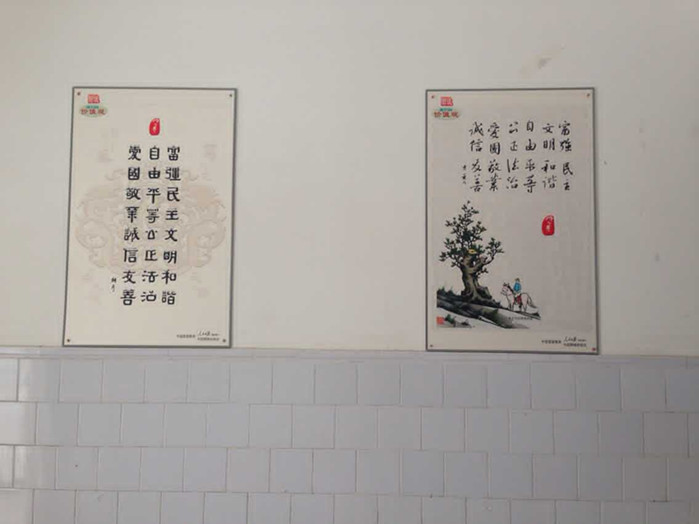 价值观
富强民主文明和谐
自由平等公正法治
愛國敬業誠信友善
价值观
富强民主
文明和谐
自由平等
公正法治
愛國敬業
诚信友善